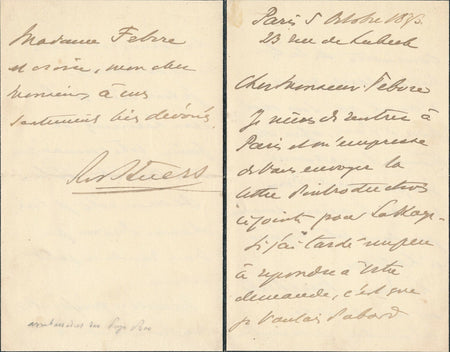 Paris 5 Octobre
23 rue de Lubeck
Cher Monsieur Febvre
Je viens de rentrer à
Paris et m'empresse
de vous envoyer la
lettre d'introduction
ci jointe pour La Haye
Si j'ai tardé un peu
à répondre à votre
demande, c'est que
je voulais d'abord
Madame Febvre
et croire, mon cher
Monsieur à mes
sentiments très dévoués.
Stuers
Pays Bas